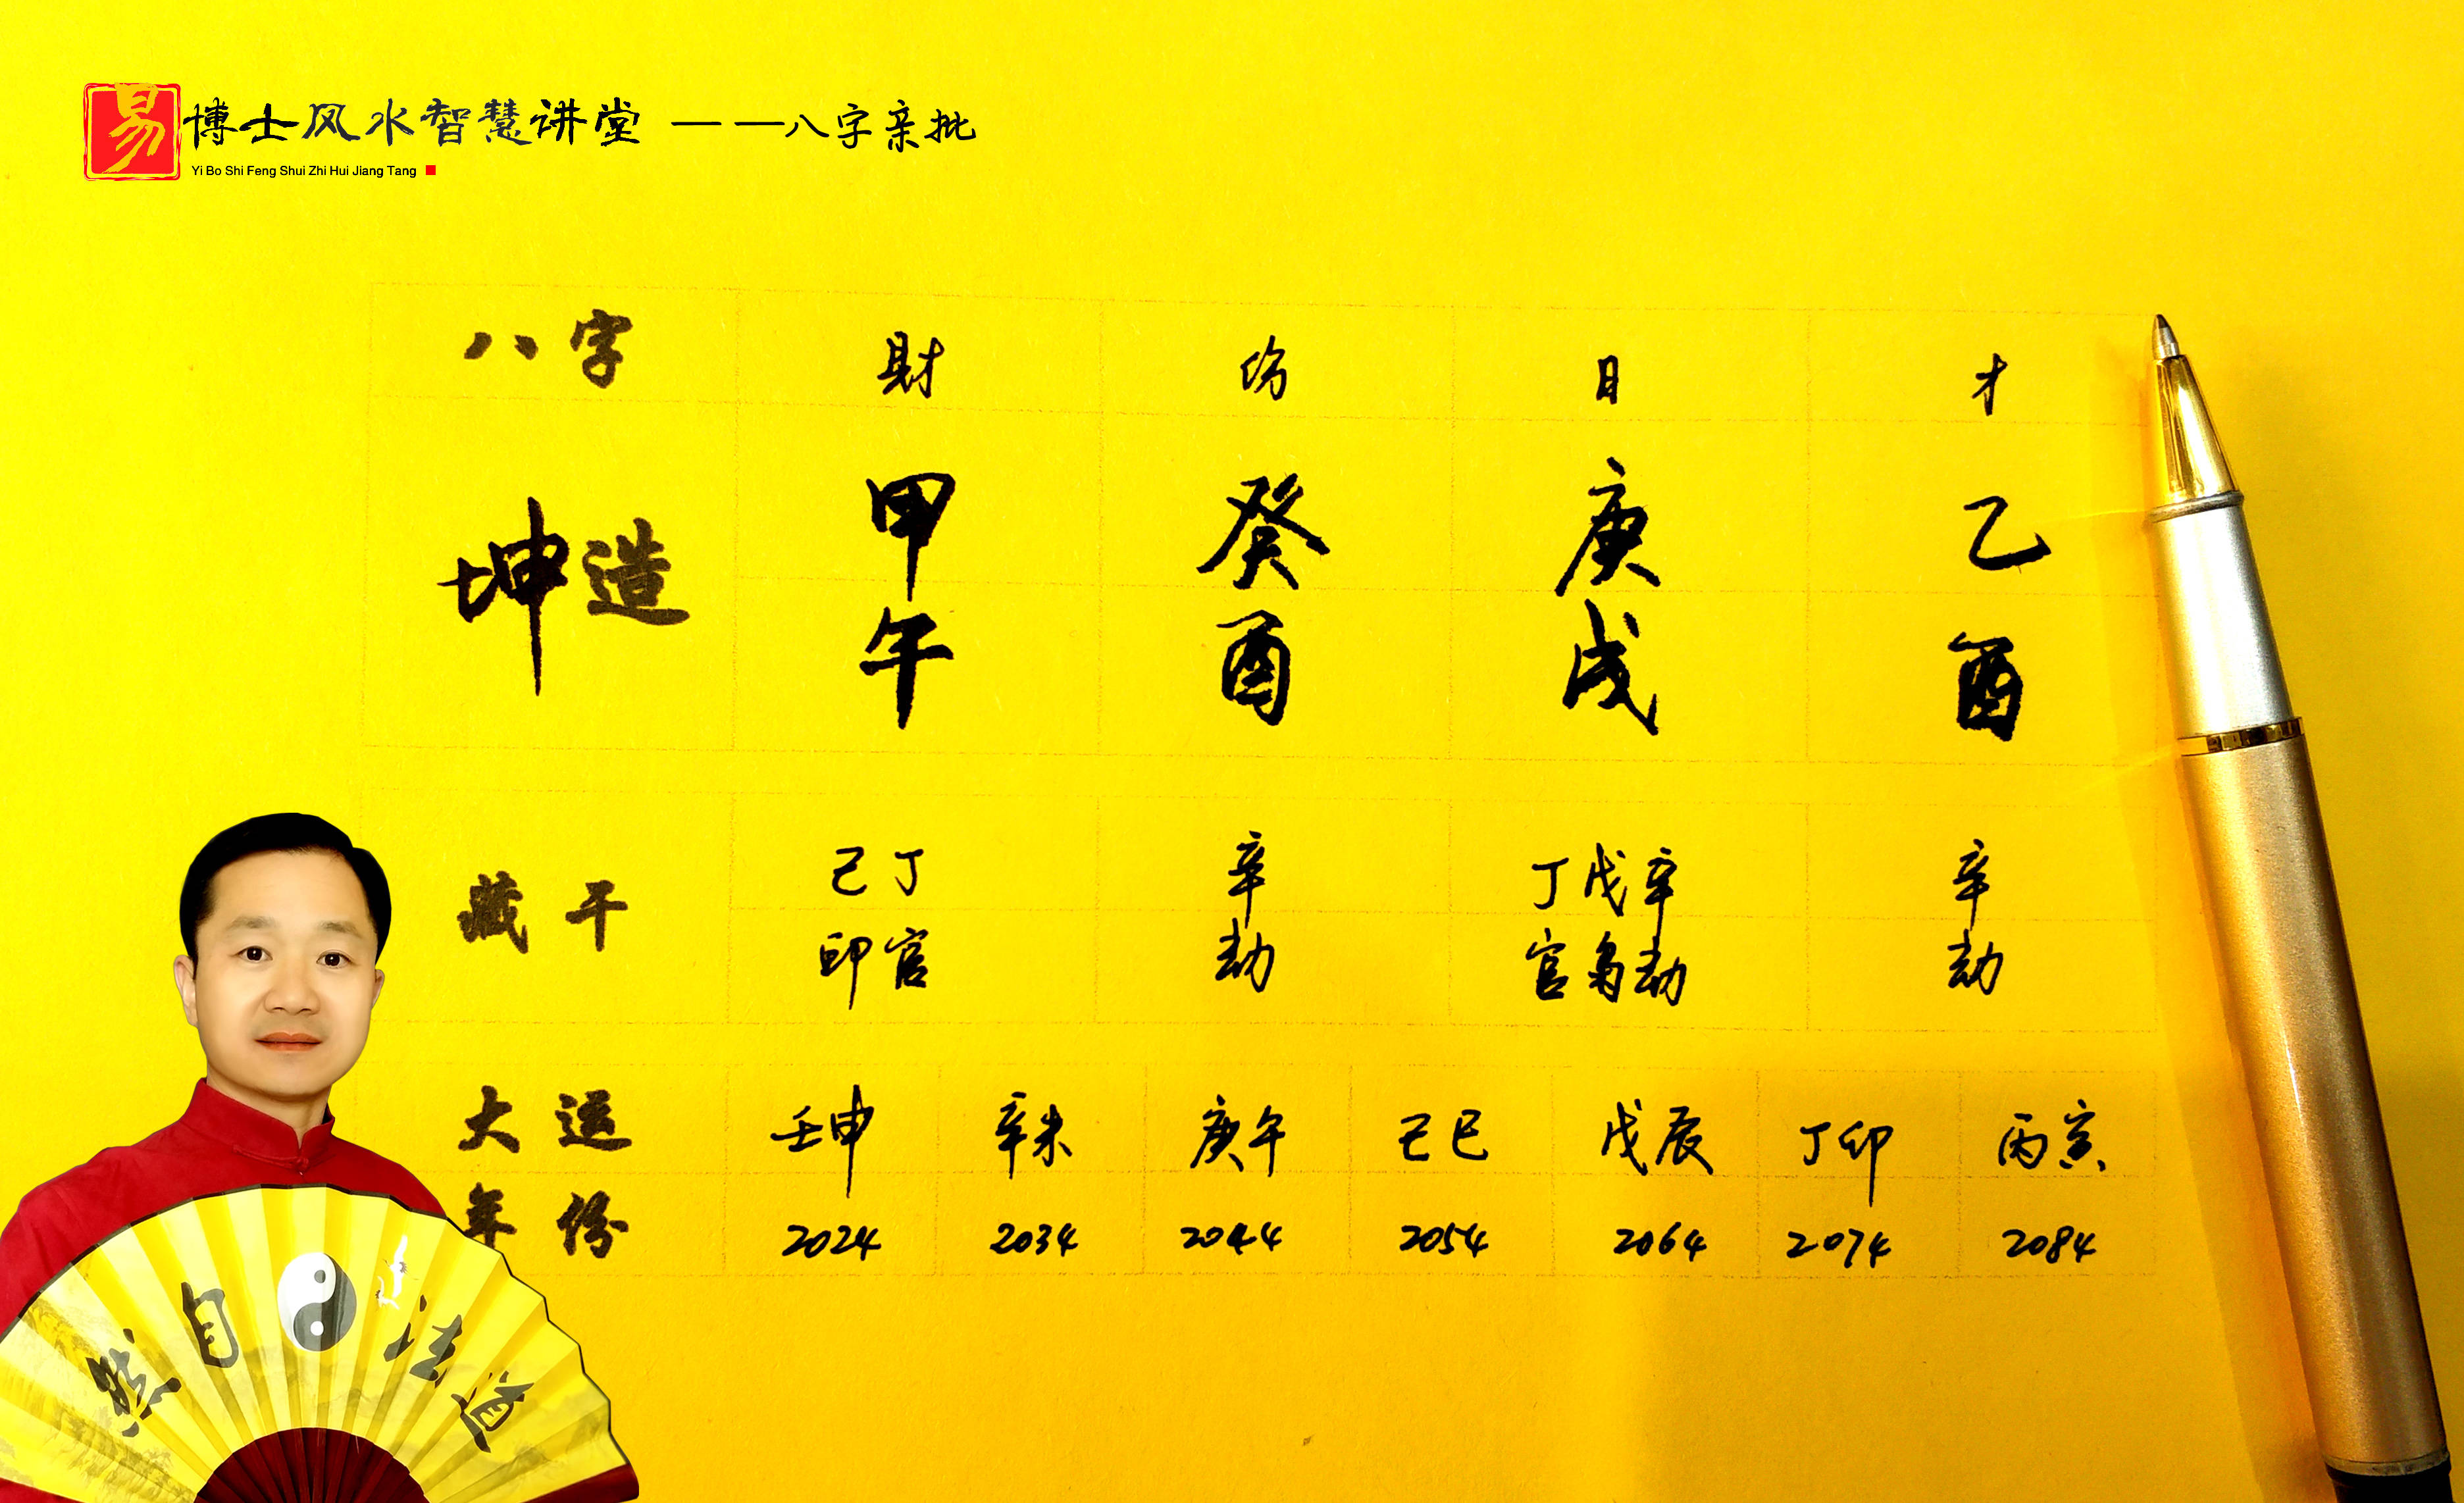 易博士风水智慧讲堂 ——八字亲批
Yi Bo Shi Feng Shui Zhi Hui Jiang Tang
八字 财 伤 日 才
坤造 甲 癸 庚 乙
午 酉 戌 酉
藏干 己丁 辛 丁戊辛 辛
印官 劫 官枭劫 劫
大运 壬申 辛未 庚午 己巳 戊辰 丁卯 丙寅
年份 2024 2034 2044 2054 2064 2074 2084
然自法道